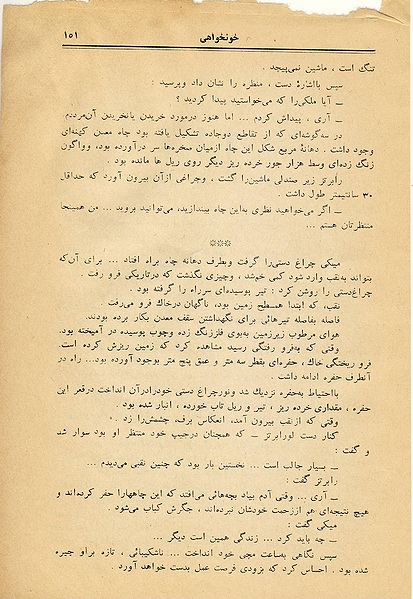 خونخواهی ۱۵۱
تنگ است ، ماشین نمی‌پیچد .
سپس بااشارهٔ دست ، منظره را نشان داد وپرسید :
ــ آیا ملکی‌را که می‌خواستید پیدا کردید ؟
ــ آری ، پیدایش کردم ... اما هنوز درمورد خریدن یانخریدن آن‌مرددم .
در سه‌گوشه‌ای که از تقاطع دوجاده تشکیل یافته بود چاه معدن کهنه‌ای
وجود داشت . دهانهٔ مربع شکل این چاه ازمیان صخره‌ها سر درآورده بود، وواگون
زنگ زده‌ای وسط هزار جور خرده ریز دیگر روی ریل ها مانده بود .
رابرتز زیر صندلی ماشین‌را گشت ، وچراغی ازآن بیرون آورد که حداقل
۳۰ سانتیمتر طول داشت .
ــ اگر می‌خواهید نظری به‌این چاه بیندازید، می‌توانید بروید ... من همینجا
منتظرتان هستم ...
***
میکی چراغ دستی‌را گرفت وبطرف دهانهٔ چاه براه افتاد ... برای آن‌که
بتواند به‌نقب وارد شود کمی خم‌شد ، وچیزی نگذشت که درتاریکی فرو رفت .
چراغ‌دستی را روشن کرد : تیر پوسیده‌ای سرراه را گرفته بود .
نقب، که ابتدا همسطح زمین بود، ناگهان درخاک فرو می‌رفت .
فاصله بفاصله تیرهائی برای نگهداشتن سقف معدن بکار برده بودند.
هوای مرطوب زیرزمین به‌بوی فلززنگ زده وچوب پوسیده در آمیخته بود.
وقتی که به‌فرو رفتگی رسید مشاهده کرد که زمین ریزش کرده است.
فرو ریختگی خاك ، حفره‌ای بقطر سه متر و عمق پنج متر بوجود آورده بود... راه در
آنطرف حفره ادامه داشت .
بااحتیاط به‌حفره نزدیك شد ونورچراغ دستی خودرادرآن انداخت درقعر این
حفره ، مقداری خرده ریز ، تیر و ریل تاب خورده ، انبار شده بود .
وقتی که ازنقب بیرون آمد، انعکاس برف، چشمش‌را زد .
کنار دست لورابرتز ــ که همچنان درجیپ خود منتظر او بود سوار شد
و گفت :
ــ بسیار جالب است ... نخستین بار بود که چنین نقبی می‌دیدم ...
رابرتز گفت :
ــ آری ... وقتی آدم بیاد بچه‌هائی می‌افتد که این چاهها را حفر کرده‌اند و
هیچ نتیجه‌ای هم اززحمت خودشان نبرده‌اند ، جگرش کباب می‌شود .
میکی گفت :
ــ چه باید کرد ... زندگی همین است دیگر ...
سپس نگاهی به‌ساعت مچی خود انداخت ... ناشکیبائی ، تازه براو چیره
شده بود . احساس کرد که بزودی فرصت عمل بدست خواهد آورد .